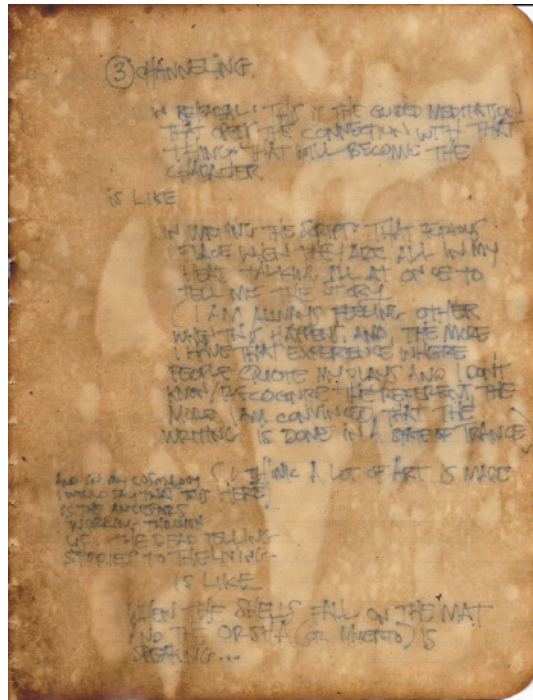 ③ CHANNELING.
IN REHEARSAL: THIS IS THE GUIDED MEDITATION
THAT OPENS THE CONNECTION WITH THAT
THING THAT WILL BECOME THE
CHARACTER.
IS LIKE
IN WRITING THE SCRIPT: THAT
PLACE WHEN THEY ARE ALL IN MY
HEAD TALKING ALL AT ONCE TO
TELL ME THE STORY
(I AM ALWAYS FEELING OTHER
WHEN THIS HAPPENS, AND, THE MORE
I HAVE THAT EXPERIENCE WHERE
PEOPLE QUOTE MY PLAYS AND I DON'T
KNOW/RECOGNIZE THE REFERENT, THE
MORE I AM CONVINCED THAT THE
WRITING IS DONE IN A STATE OF TRANCE)
(I THINK A LOT OF ART IS MADE
AND IN MY COSMOLOGY
I WOULD SAY THAT THIS HERE)
IS THE ANCESTORS
WORKING THROUGH
US. THE DEAD TELLING
STORIES TO THE LIVING.
IS LIKE
WHEN THE SHELLS FALL ON THE MAT
AND THE ORISHA (OR MUERTO) IS
SPEAKING...